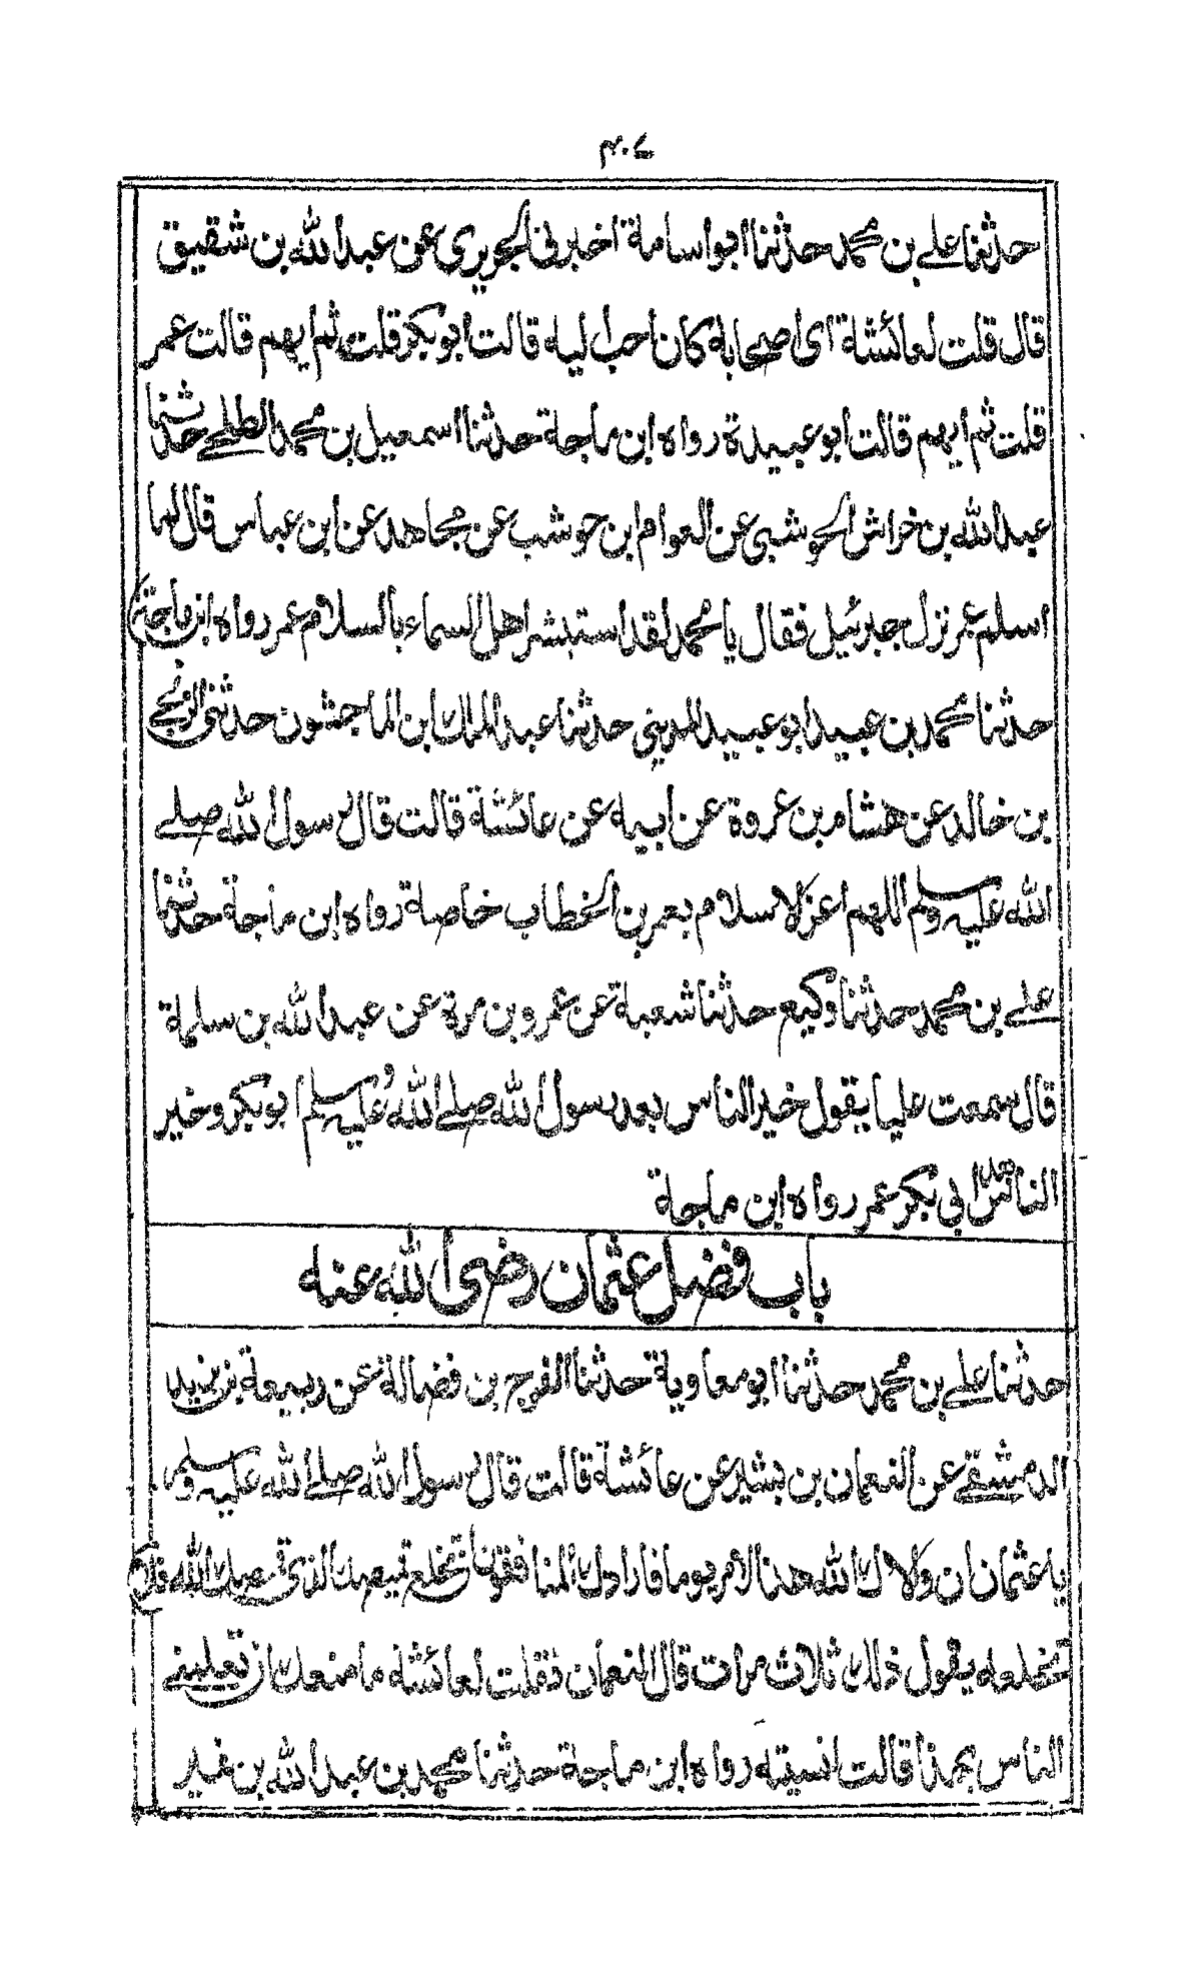 ۴۰۷
حدثنا علے بن محمد حدثنا ابو اسامة اخبرنی الجریری عن عبد الله بن شقیق
قال قلت لعائشة ای اصحابه کان احب الیه قالت ابو بکر قلت ثم ایهم قالت عمر
قلت ثم ایهم قالت ابو عبیدة رواه ابن ماجة حدثنا اسمعیل بن محمد الطلحے حدثنا
عبد الله بن خراش الحوشبی عن العوام بن حوشب عن مجاهد عن ابن عباس قال لما
اسلم عمر نزل جبرئیل فقال یا محمد لقد استبشر اهل السماء بالسلام عمر رواه ابن ماجة
حدثنا محمد بن عبید ابو عبید المدینی حدثنا عبد الملک ابن الماجشون حدثنی الزنجے
بن خالد عن هشام بن عروة عن ابیه عن عائشة قالت قال رسول الله صلے
الله علیه وسلم اللهم اعز الاسلام بعمر بن الخطاب خاصة رواه ابن ماجة حدثنا
علے بن محمد حدثنا وکیع حدثنا شعبة عن عمرو بن مرة عن عبد الله بن سلمة
قال سمعت علیا یقول خیر الناس بعد رسول الله صلے الله علیه وسلم ابو بکر وخیر
الناس بعد ابی بکر عمر رواه ابن ماجة
باب فضل عثمان رضی الله عنه
حدثنا علے بن محمد حدثنا ابو معاویة حدثنا الفرج بن فضالة عن ربیعة بن یزید
الدمشقے عن النعمان بن بشیر عن عائشة قالت قال رسول الله صلے الله علیه وسلم
یا عثمان ان ولاک الله هذا الامر یوما فارادک المنافقون ان تخلع قمیصک الذی قمصک الله فلا
تخلعه یقول ذلک ثلاث مرات قال النعمان فقلت لعائشة ما منعک ان تعلمے
الناس بهذا قالت انسیته رواه ابن ماجة حدثنا محمد بن عبد الله بن نمیر